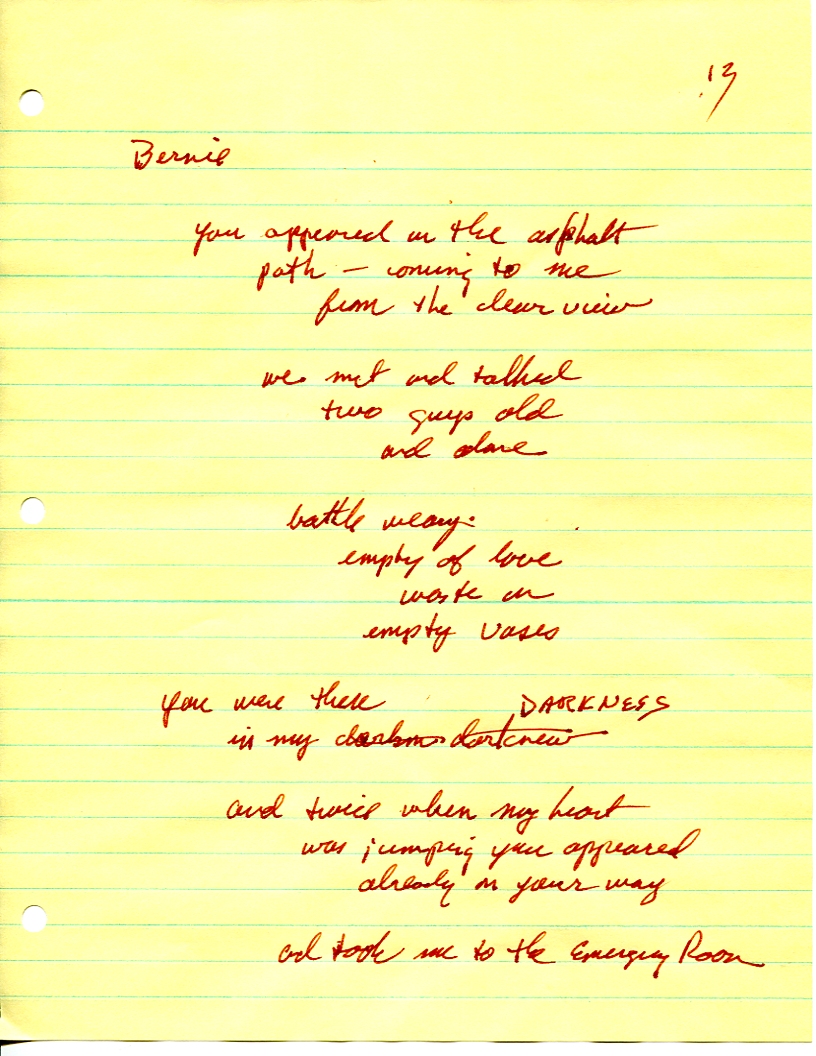 13
Bernie
you appeared on the asphalt
path – coming to me
from the clear view
we met and talked
two guys old
and alone
battle weary.
empty of love
waste on
empty vases
you were there
DARKNESS
in my darkness darkness
and twice when my heart
was jumping you appeared
already on your way
and took me to the Emergency Room